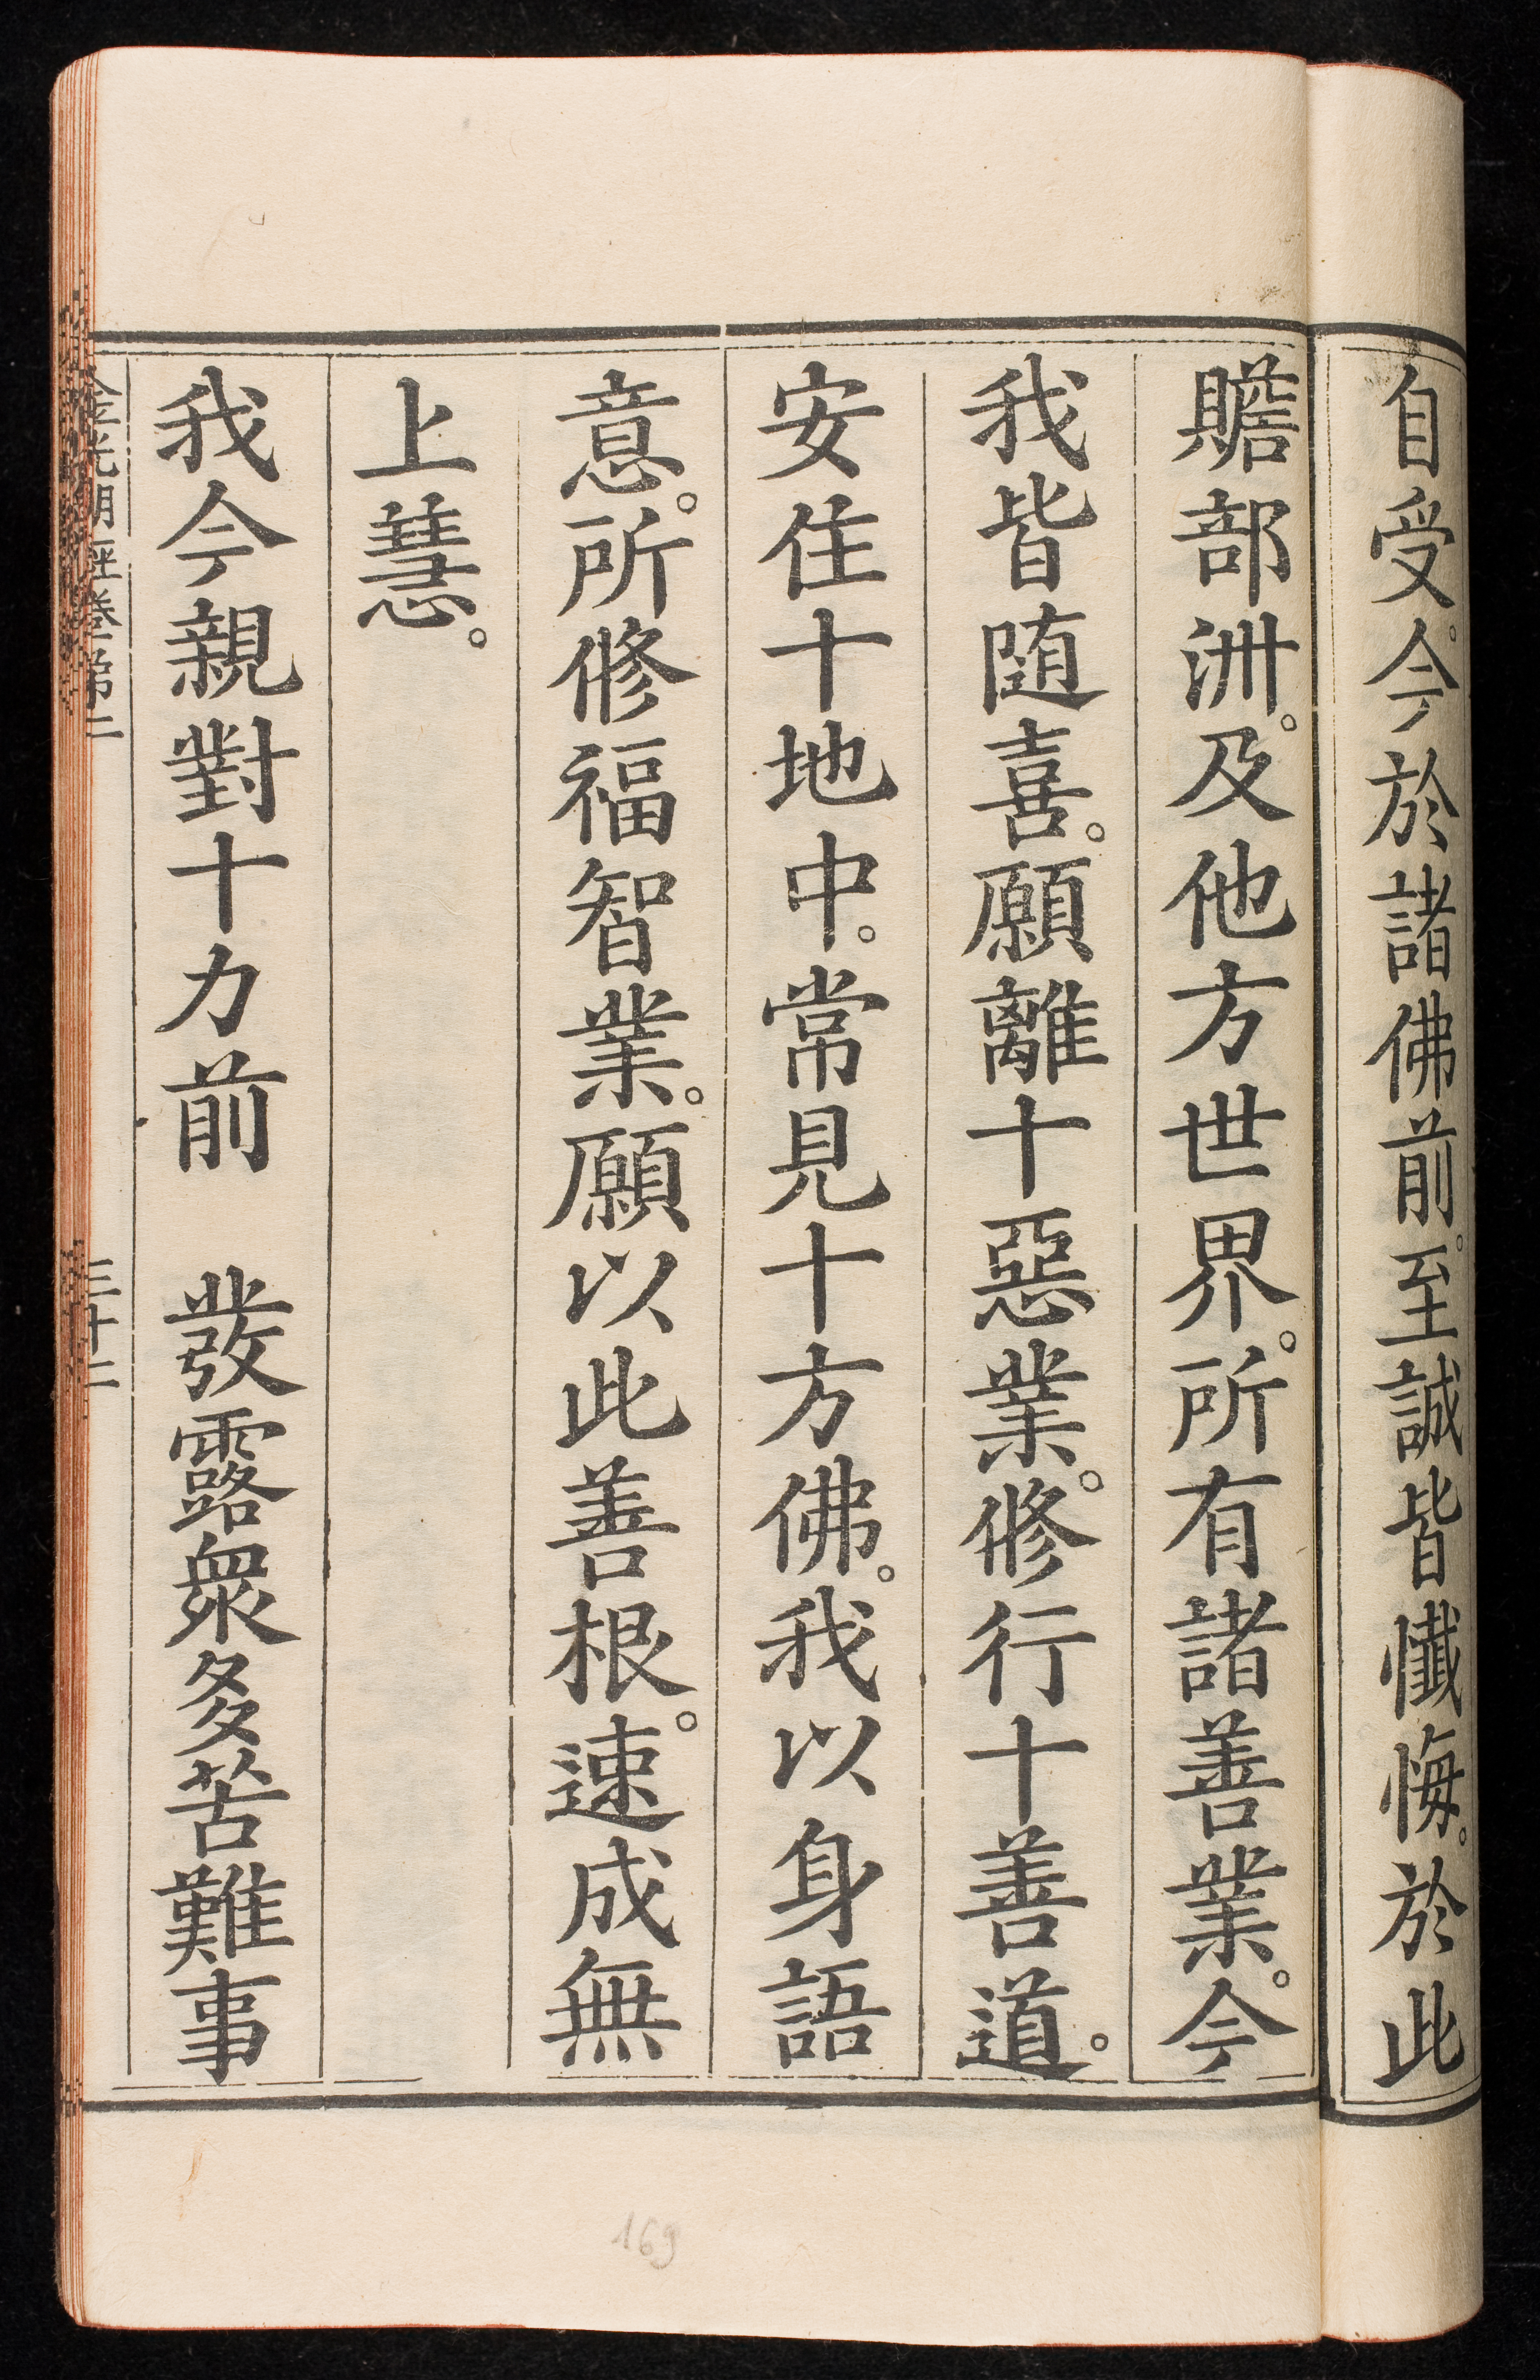 自受。今於諸佛前。至誠皆懺悔。於此
贍部洲。及他方世界。所有諸善業。今
我皆随喜。願離十惡業。修行十善道。
安住十地中。常見十方佛。我以身語
意。所修福智業。願以此善根。速成無
上慧。
我今親對十力前　發露衆多苦難事
金光明經卷第二　三十二
169